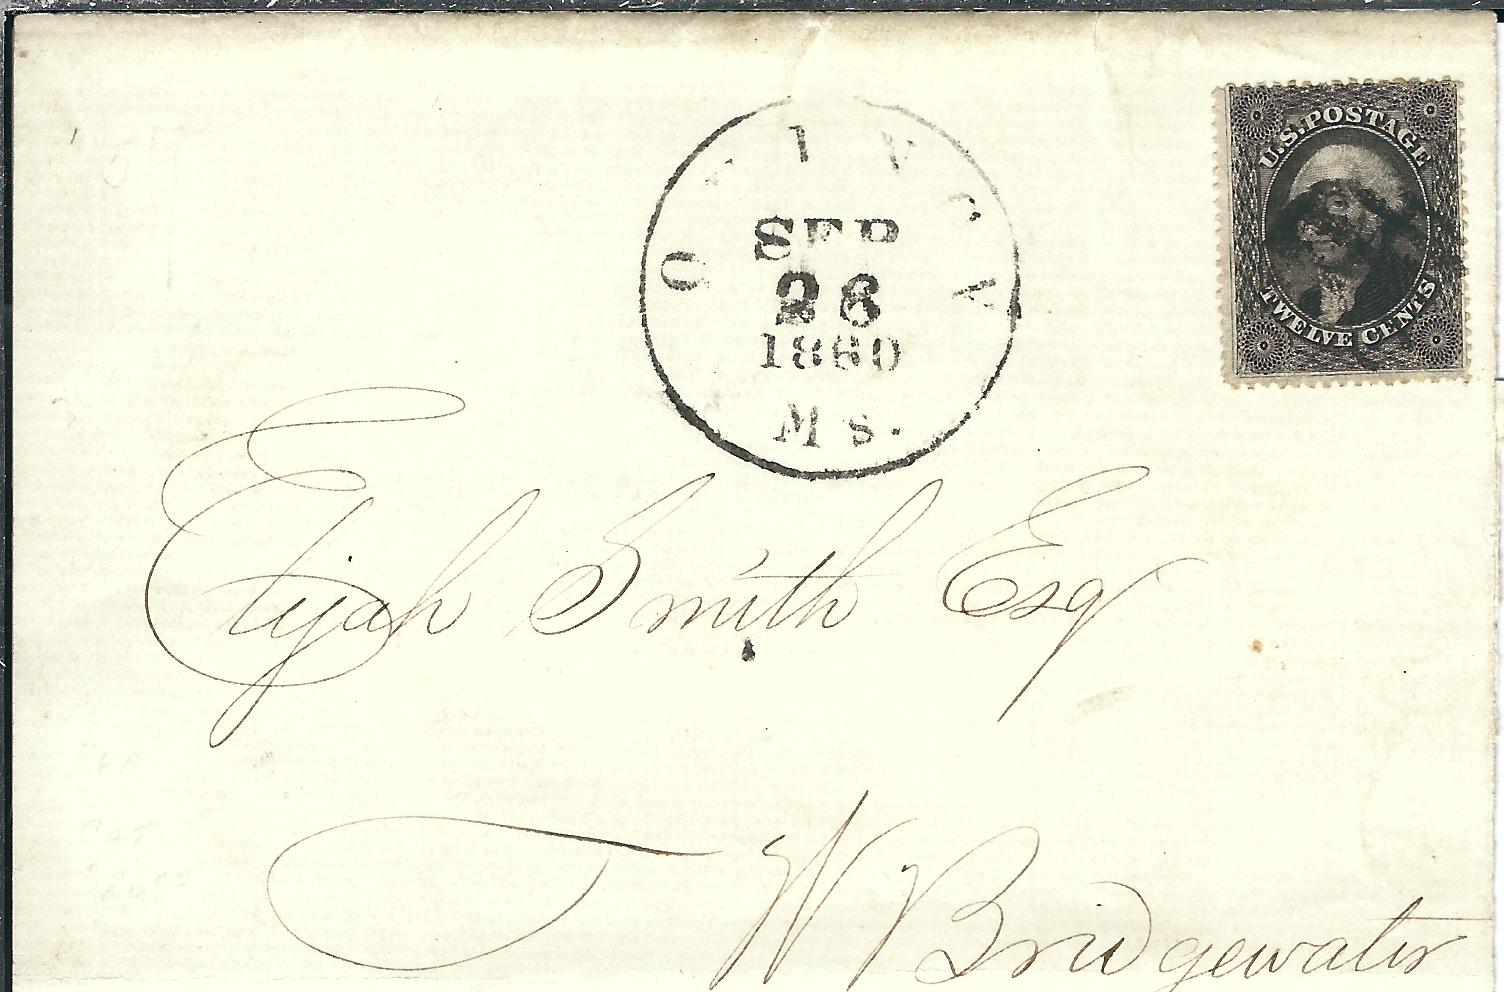 U.S. POSTAGE
TWELVE CENTS
QUINCY
SEP
26
1860
Ms.
Elijah Smith Esq
W Bridgewater